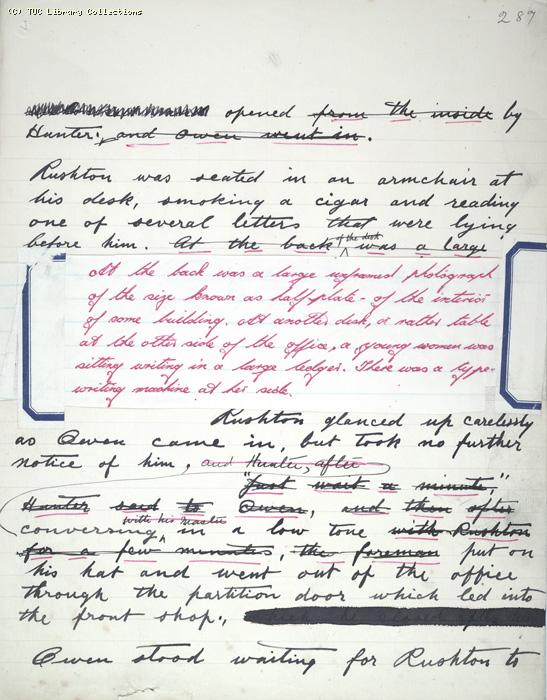 (C) TUC Library Collections
287
opened from the inside by
Hunter, and Owen went in.
Rushton was seated in an armchair at
his desk, smoking a cigar and reading
one of several letters that were lying
before him. At the back of the desk was a large
At the back was a large unframed photograph
of the size known as half-plate - of the interior
of some building. At another desk, or rather table
at the other side of the office, a young women was
sitting writing in a large ledger. There was a type-
writing machine at her side.
Rushton glanced up carelessly
as Owen came in, but took no further
notice of him, and Hunter, after
"Just wait a minute,"
Hunter said to Owen, and then after
conversing with his master in a low tone with Rushton
for a few minutes, the foreman put on
his hat and went out of the office
through the partition door which led into
the front shop.,
Owen stood waiting for Rushton to